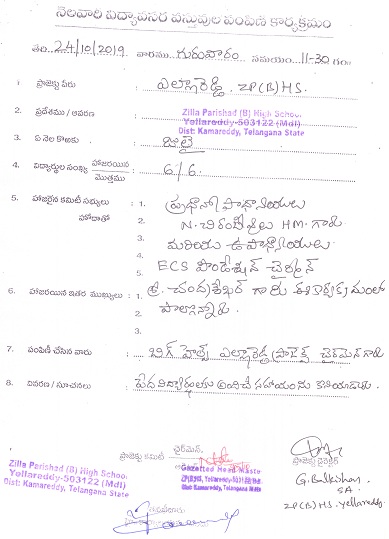 నెలవారి విద్యావసర వస్తువుల పంపిణి కార్యక్రమం
తేది 24/10/2019 వారము గురువారం సమయం 11-30 గం॥
1. ప్రాజెక్టు పేరు : ఎల్లారెడ్డి. ZP(B)HS.
2. ప్రదేశము / ఆవరణ :
Zilla Parishad (B) High School
Yellareddy-503122 (Mdl)
Dist: Kamareddy, Telangana State
3. ఏ నెల కొఱకు : జులై
4. విద్యార్థుల సంఖ్య హాజరయిన / మొత్తము : 6/6.
5. హాజరైన కమిటీ సభ్యులు : 1. ప్రధానోపాధ్యాయులు
హోదాతో 2. N. చిరంజీవులు HM. గారు
3. మరియు ఉపాధ్యాయులు
4.
5. ECS ఫౌండేషన్ చైర్మన్
6. హాజరయిన ఇతర ముఖ్యులు : 1. శ్రీ. చంద్రశేఖర్ గారు ఈ కార్యక్రమంలో
2. పాల్గొన్నారు.
3.
7. పంపిణీ చేసిన వారు : బిగ్ హెల్ప్ ఎల్లారెడ్డి ప్రాజెక్ట్ చైర్మెన్ గారు
8. వివరణ / సూచనలు : పేద విద్యార్థులకు అందించే సహాయంను కొనియాడారు.
ప్రాజెక్టు కమిటీ చైర్‌మెన్.
ప్రాజెక్టు డైరెక్టర్
Zilla Parishad (B) High School
Yellareddy-503122 (Mdl)
Dist: Kamareddy, Telangana State
Gazetted Head Maste
Dist: Kamareddy, Telangana State
G. Balkishan
SA
ZP(B)HS. Yellareddy.